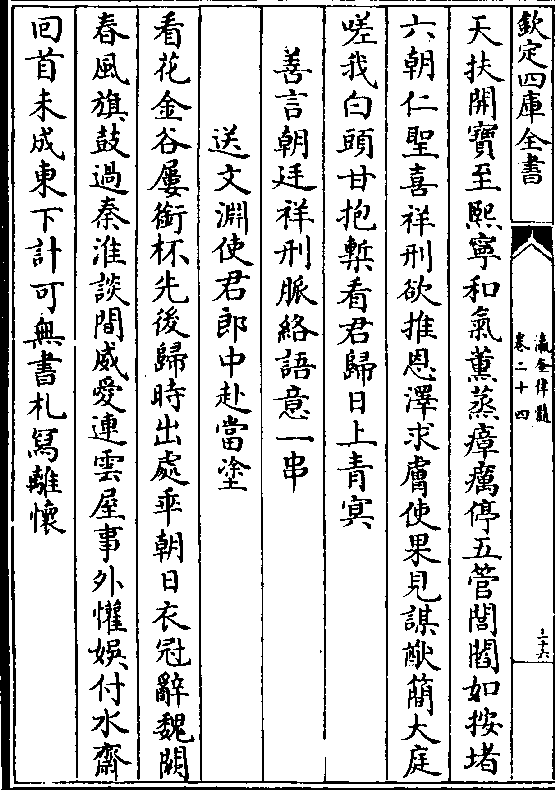 欽定四庫全書
瀛奎律髓
卷二十四
三十六
天扶開寶至熙寧和氣薰蒸瘴癘停五管閭閻如按堵
六朝仁聖喜祥刑欲推恩澤求膚使果見謀猷簡大庭
嗟我白頭甘抱槧看君歸日上青冥
善言朝廷祥刑脈絡語意一串
送文淵使君郎中赴當塗
看花金谷屢銜杯先後歸時出處乖朝日衣冠辭魏闕
春風旗鼓過秦淮談間威愛連雲屋事外懽娛付水齋
回首未成東下計可無書札寫離懷